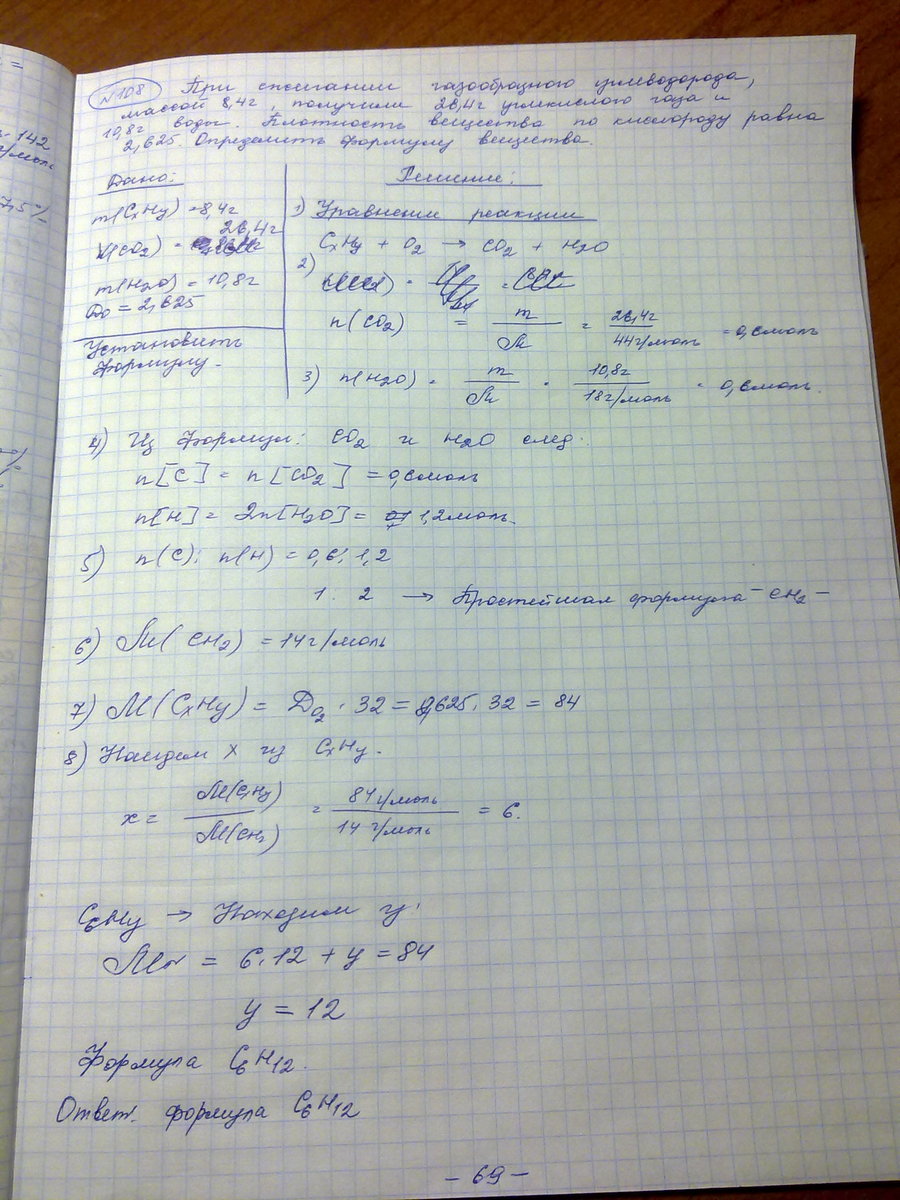 №108 При сжигании газообразного углеводорода,
массой 8,4г, получили 26,4г углекислого газа и
10,8г воды. Плотность вещества по кислороду равна
2,625. Определить формулу вещества.
Дано:
m(CxHy) = 8,4г
26,4г
(CO2) =
m(H2O) = 10,8г
D0 = 2,625
Установить
формулу.
Решение:
1) Уравнение реакции
CxHy + O2 → CO2 + H2O
2)
n(CO2) = m/M = 26,4г/44г/моль = 0,6моль
3) n(H2O) = m/M = 10,8г/18г/моль = 0,6моль
4) Из формул: CO2 и H2O след.
n[C] = n[CO2] = 0,6моль
n[H] = 2n[H2O] = 1,2моль
5) n(C): n(H) = 0,6: 1,2
1 : 2 → Простейшая формула - CH2 -
6) M(CH2) = 14г/моль
7) M(CxHy) = DO2 · 32 = 2,625 · 32 = 84
8) Найдем x из CxHy.
x = M(CxHy)/M(CH2) = 84г/моль/14г/моль = 6.
C6Hy → Находим y:
Mr = 6.12 + y = 84
y = 12
Формула C6H12.
Ответ: формула C6H12
- 69 -
142
г/моль
7,5%